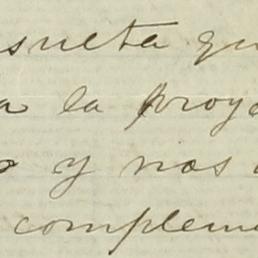 suelta qu
a la proye
o y nos
compleme